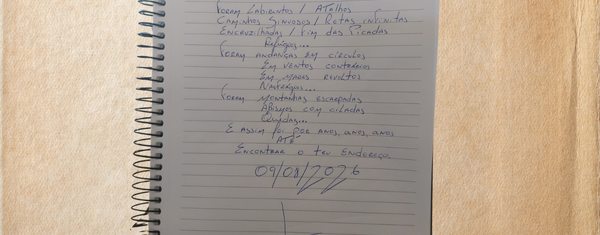 Foram Labirintos / Atalhos
Caminhos Sinuosos / Retas infinitas
Encruzilhadas / Fim das Picadas
Refúgios...
Foram andanças em círculos
Em ventos contrários
Em mares revoltos
Naufrágios...
Foram montanhas escarpadas
Abismos com ciladas
Quedas...
E assim foi por anos, anos, anos
Até
Encontrar o teu endereço
09/01/2026